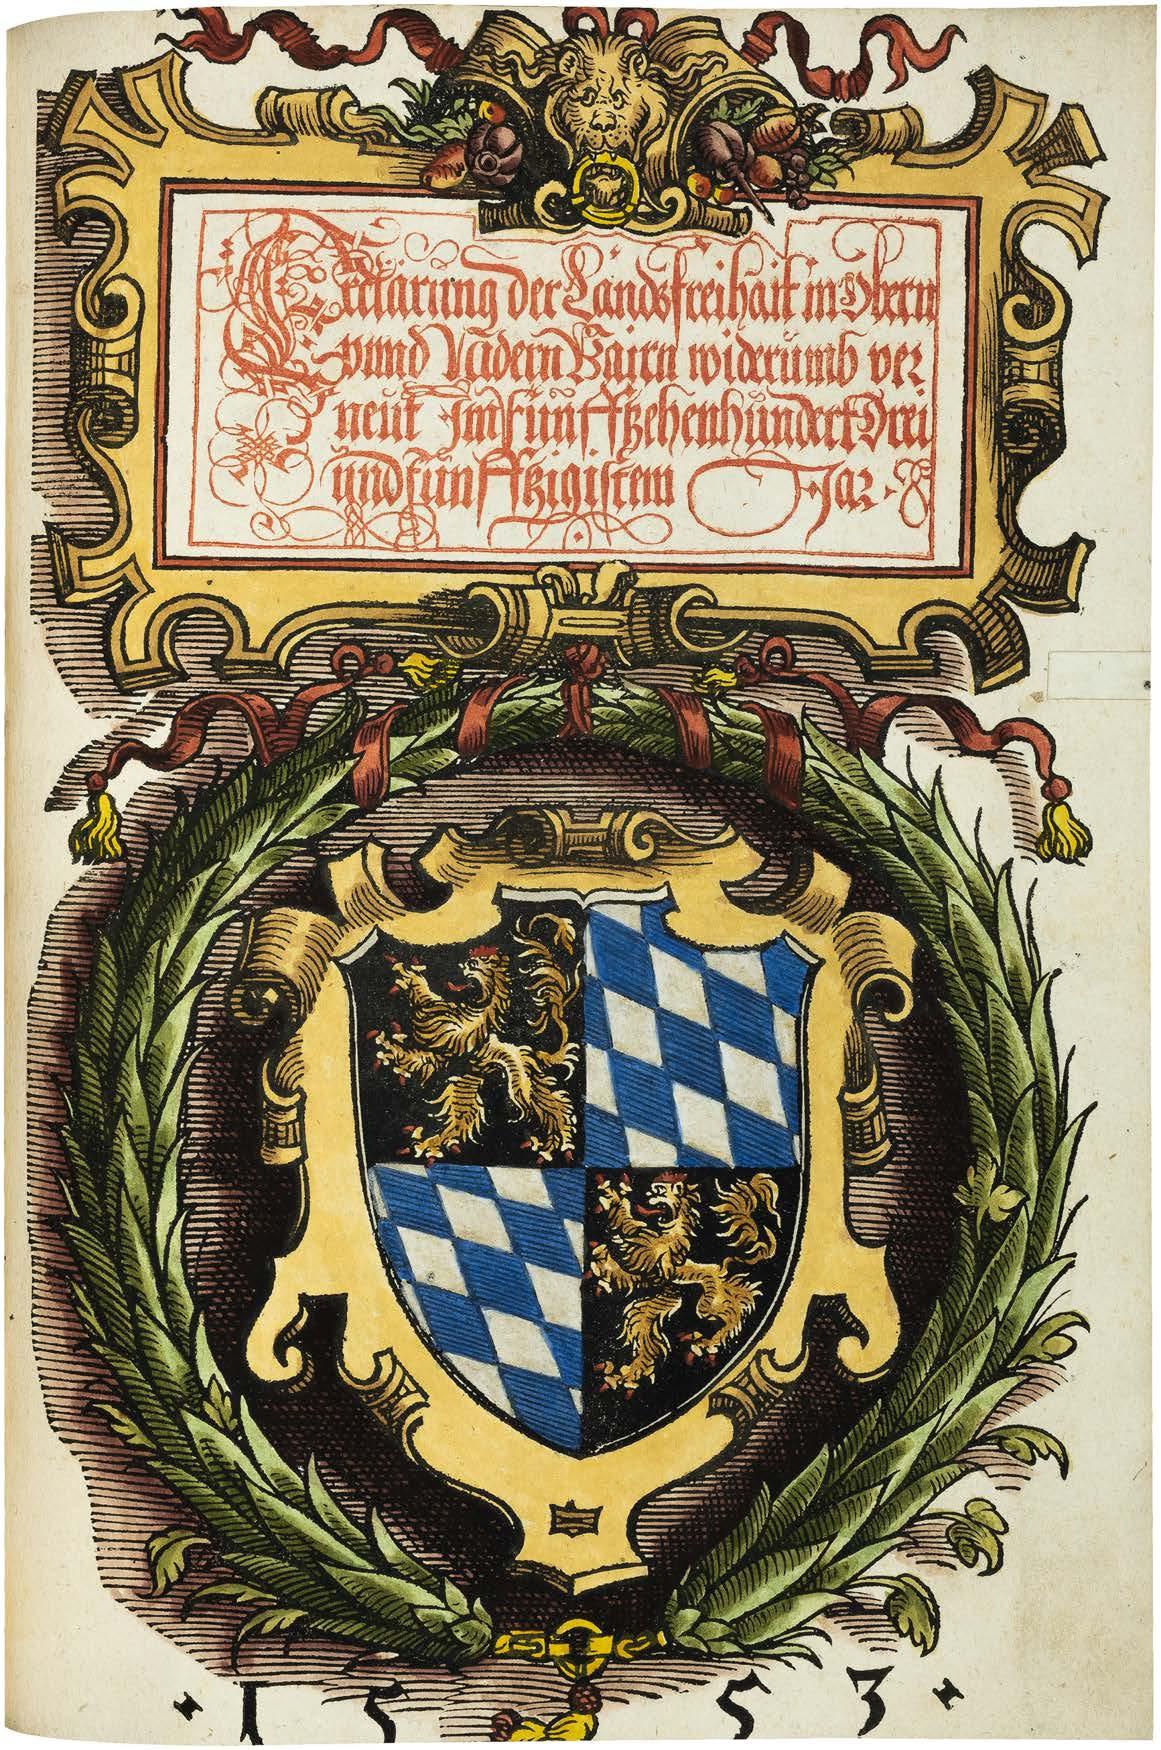 Erclärung der Landsfreihait in Obern
vnnd Nidern Bairn widerumb ver
neut Im fünfftzehenhundert Drei
undfünfftzigistem Jar.
1553